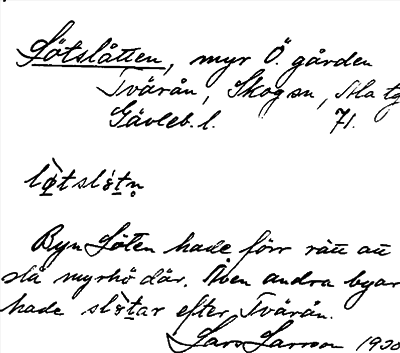 Lötslåtten, myr Ö. gården
Tvärån, Skog sn, Ala tg
Gävleb. l. 71.
lø̀tslɛtn̥
Byn Löten hade förr rätt att
slå myrhö där. Även andra byar
hade slɛ̀tar efter Tvärån.
Lars Larsson 1930